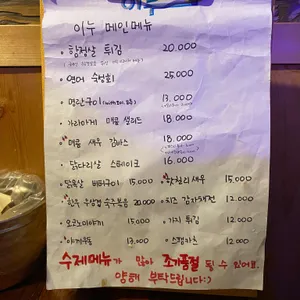 이누
이누 메인메뉴
• 항정살 튀김 20.000
• 연어 숙성회 25.000
• 명란구이 13.000
• 가라아게 매콤 샐러드 18.000
매콤 새우 감바스 18.000
• 닭다리살 스테이크 16.000
• 닭목살 버터구이 15.000
칠리 새우 15.000
한우 우삼겹 숙주볶음 20.000
• 치즈 감자채전 12.000
• 오코노미야끼 15.000
• 가지 튀김 12.000
• 13.000
• 스팸카츠 12.000
수제메뉴가 많아 조기품절 될 수 있어요.
양해 부탁드립니다:)